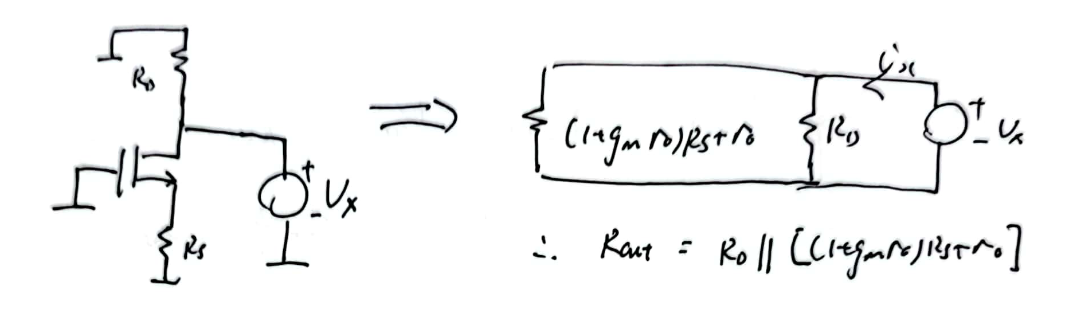 R_D
R_S
+
-
V_x
⇒
(1+g_m r_o)R_S+r_o
R_D
i_x
+
-
V_x
∴ R_out = R_D || [(1+g_m r_o)R_S+r_o]